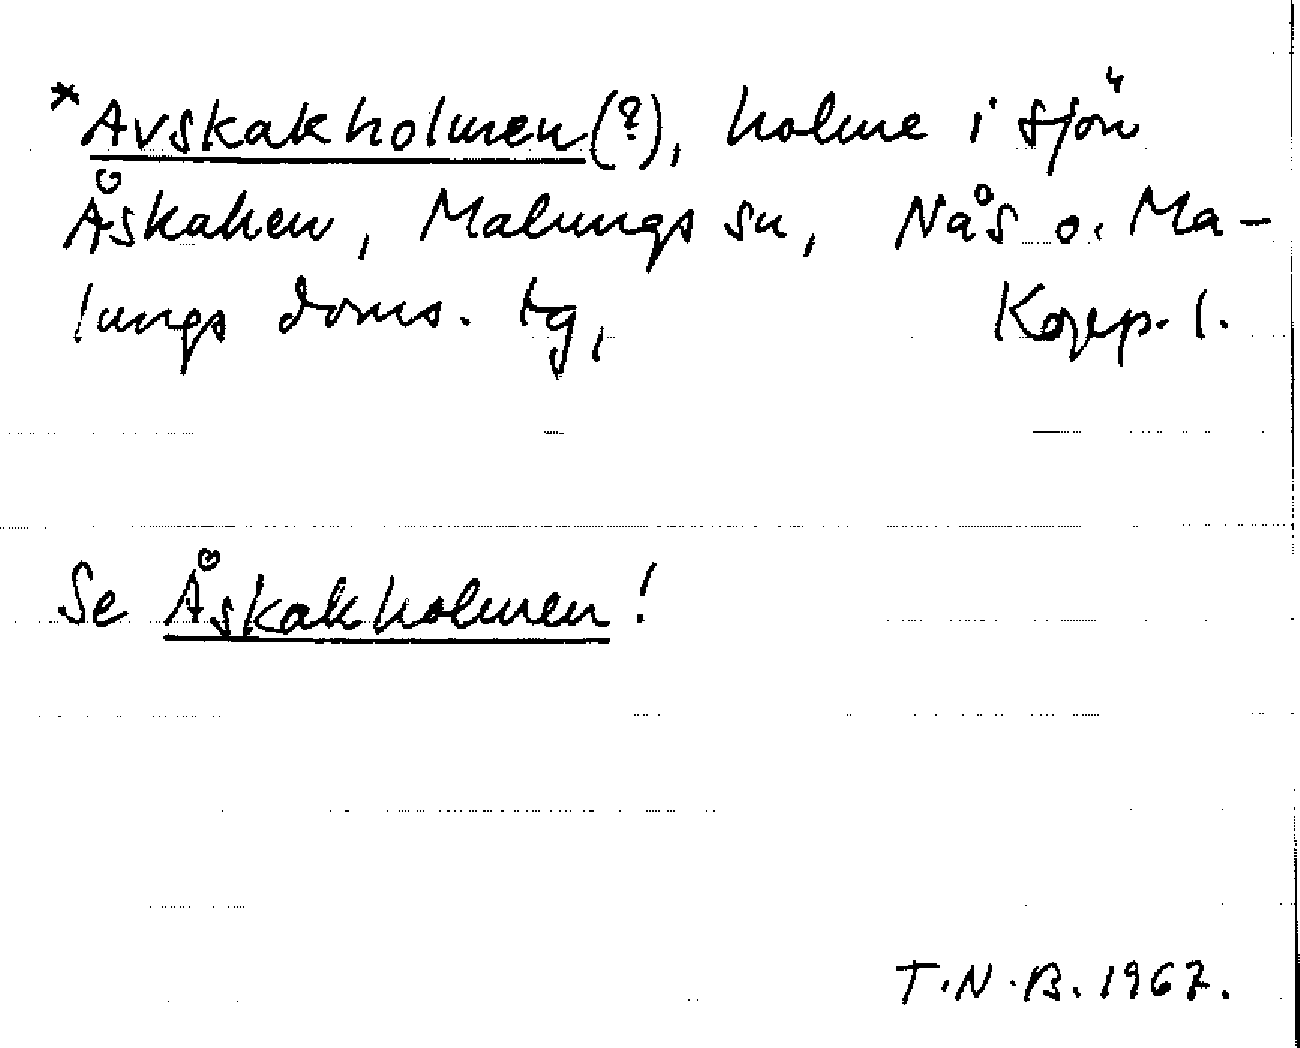 *Avskakholmen(?), holme i sjön
Åskaken, Malungs sn, Nås o. Ma-
lungs doms. tg, Kopp. l.
Se Åskakholmen!
T.N.B. 1967.